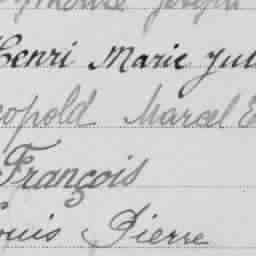 Henri Marie Jul
opold Marcel E
François
ouis Pierre